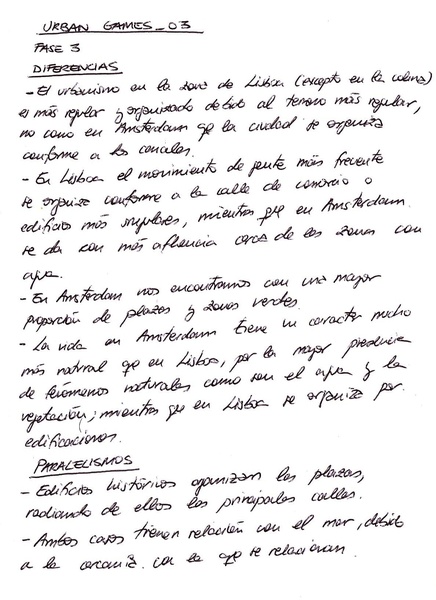 URBAN GAMES_03
FASE 3
DIFERENCIAS
- El urbanismo en la zona de Lisboa (excepto en la colina)
es más regular y organizado debido al terreno más regular,
no como en Amsterdam qe la ciudad se organiza
conforme a los canales.
- En Lisboa el movimiento de gente más frecuente
se organiza conforme a la calle de comercio o
edificios más singulares, mientras qe en Amsterdam
se da con más afluencia cerca de las zonas con
agua.
- En Amsterdam nos encontramos con una mayor
proporción de plazas y zonas verdes.
- La vida en Amsterdam tiene un caracter mucho
más natural qe en Lisboa, por la mayor presencia
de fenómenos naturales como son el agua y la
vegetación; mientras qe en Lisboa se organiza por
edificaciones.
PARALELISMOS
- Edificios históricos organizan las plazas,
radiando de ellos las principales calles.
- Ambos casos tienen relación con el mar, debido
a la cercanía con la qe se relacionan.